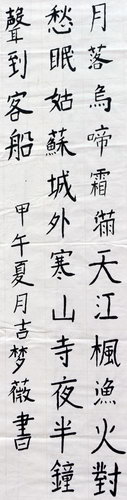 月落烏啼霜滿天江楓漁火對
愁眠姑蘇城外寒山寺夜半鐘
聲到客船
甲午夏月吉梦薇書